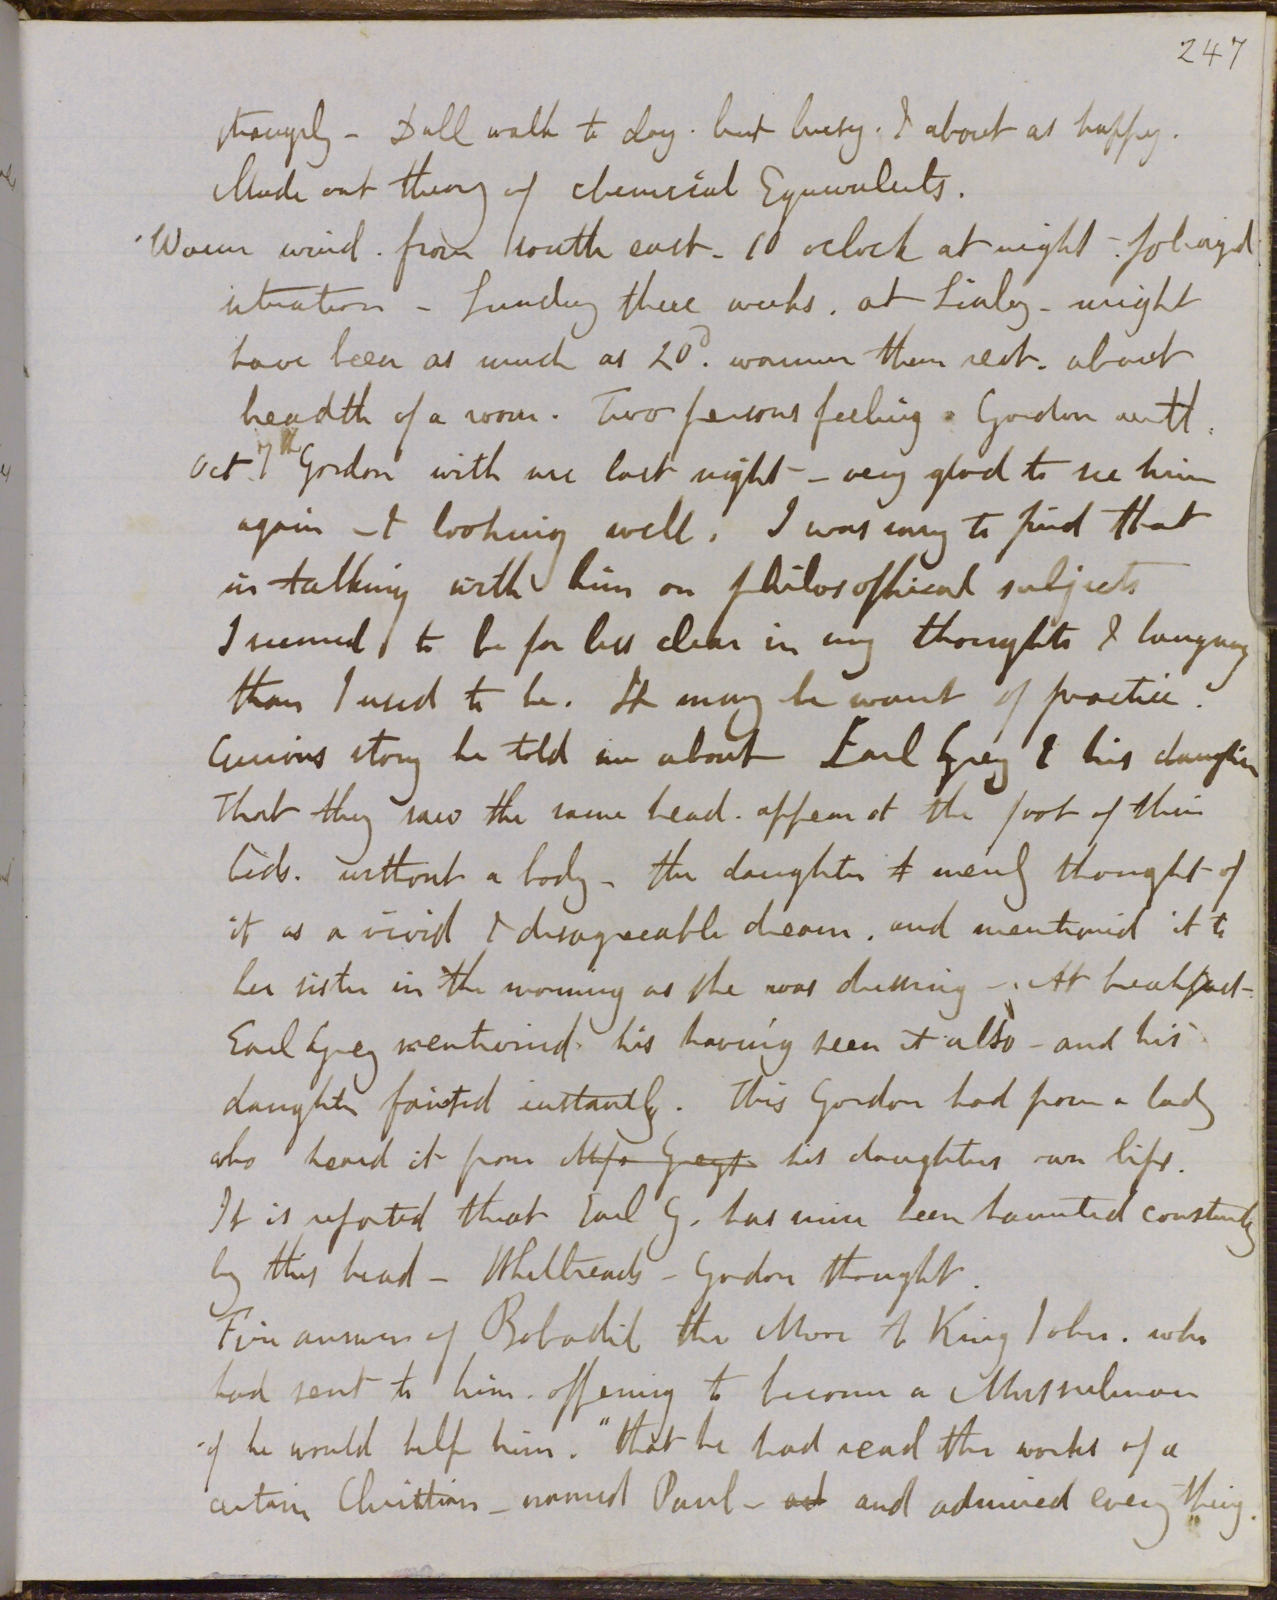 247
strangely - Dull walk to day. but busy. I about as happy.
Made out theory of chemical Equivalents.
Warm wind. from south east - 10 oclock at night -
situation - Sunday three weeks. at - might
have been as much as 20°. warmer than rest. about
breadth of a room. Two persons feeling. Gordon
Oct 7th Gordon with me last night - very glad to see him
again - & looking well. I was sorry to find that
in talking with him on philosophical subjects
I seemed to be far less clear in my thoughts & language
than I used to be. It may be want of practice.
Curious story he told me about Earl Grey & his daughter
That they saw the same head. appear at the foot of their
beds. without a body - the daughter merely thought of
it as a vivid & disagreeable dream. and mentioned it to
her sister in the morning as she was dressing - At breakfast -
Earl Grey mentioned his having seen it also - and his
daughter fainted instantly. This Gordon had from a lady
who heard it from Miss Greys his daughters own lips.
It is reported that Earl G. has since been haunted constantly
by this head - Whitbreads - Gordon thought.
Fine answer of Bobadil the Moor to King John. who
had sent to him. offering to become a Mussulman
if he would help him. "that he had read the works of a
certain Christian - named Paul - and and admired every thing.